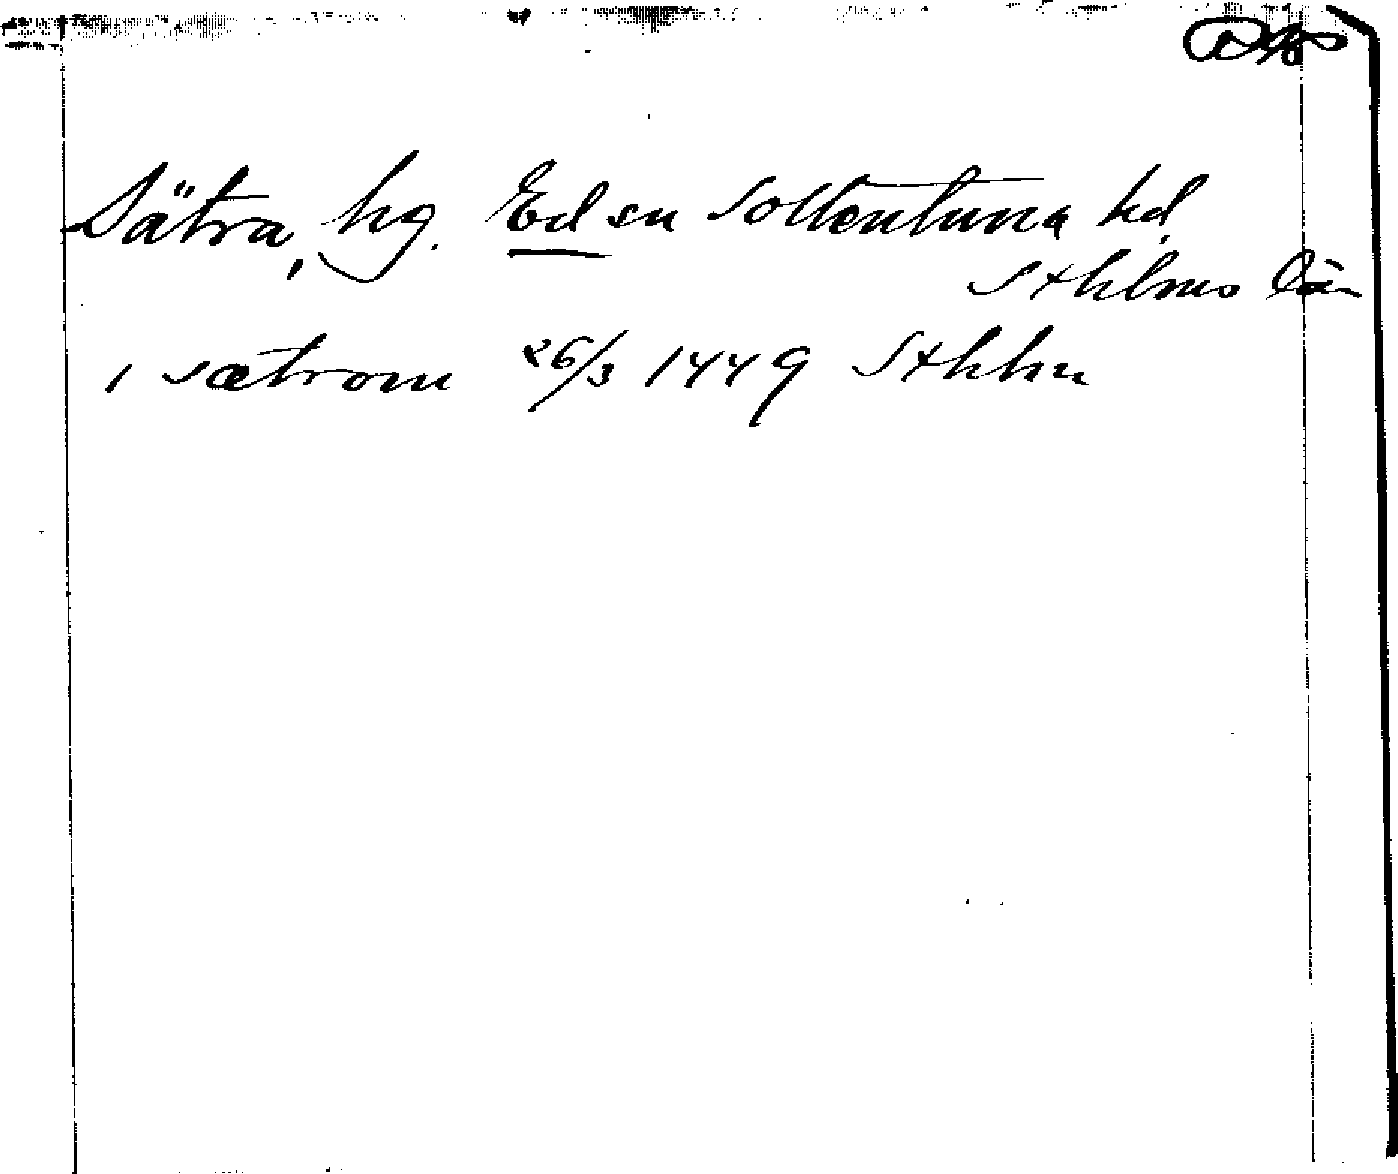 Sätra, hg. Ed sn Sollentuna hd.
Sthlms län
i sætrom 26/3 1449 Sthlm